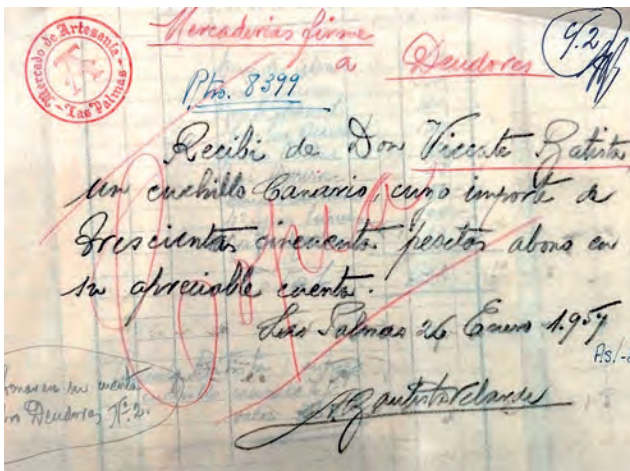 Mercado de Artesanía - Las Palmas -
Mercaderías firme
a
Deudores
9.2
Ptas. 8399
Recibí de Don Vicente Batista
un cuchillo Canario, cuyo importe de
trescientas cincuenta pesetas abono en
su apreciable cuenta.
Las Palmas 26 Enero 1.957
Copia
en su cuenta
Deudores Nº 2.